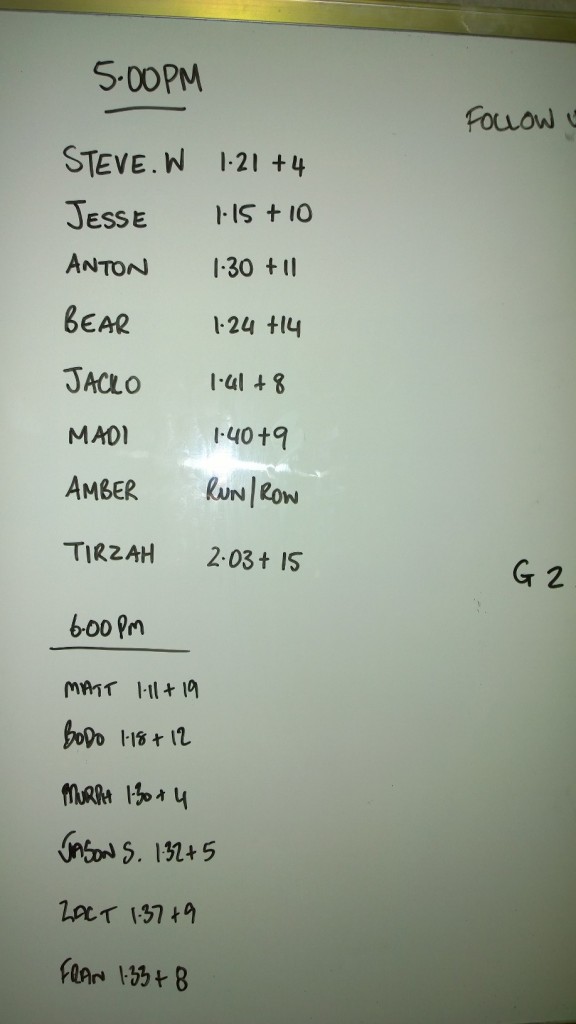 5.00PM
FOLLOW
STEVE.W 1.21 +4
JESSE 1.15 + 10
ANTON 1.30 +11
BEAR 1.24 +14
JACKO 1.41 + 8
MADI 1.40+9
AMBER RUN/ROW
TIRZAH 2.03+ 15
G 2
6.00 PM
MATT 1.11 + 19
BODO 1.18 + 12
MURPH 1.30 + 4
JASON S. 1.32+5
ZAC T 1.37+9
FRAN 1.33+ 8